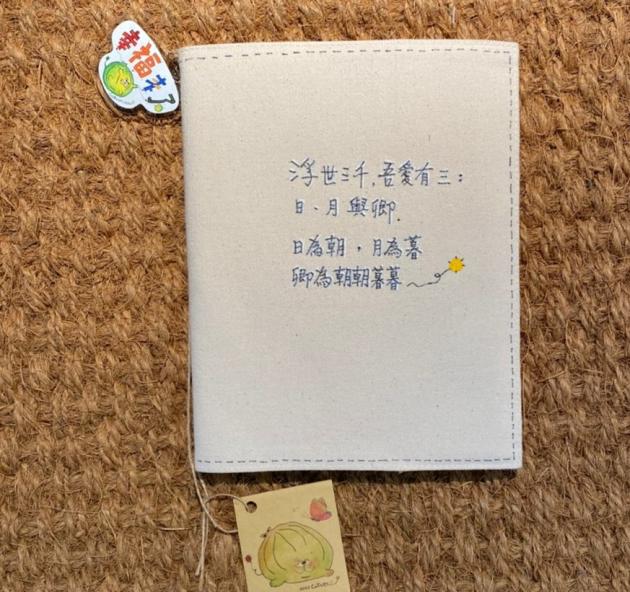 幸福來了
浮世三千,吾愛有三:
日、月與卿.
日為朝,月為暮
卿為朝朝暮暮